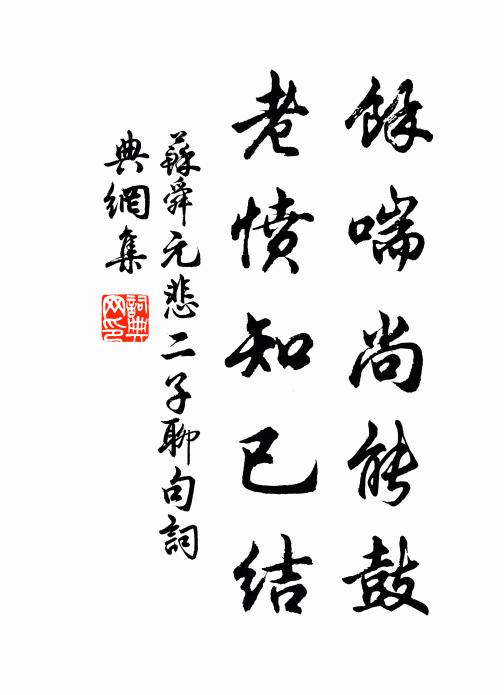 餘喘尚能鼓
老憤知已结
蘇舜元悲二子聊句詞
典網集
詞典网印